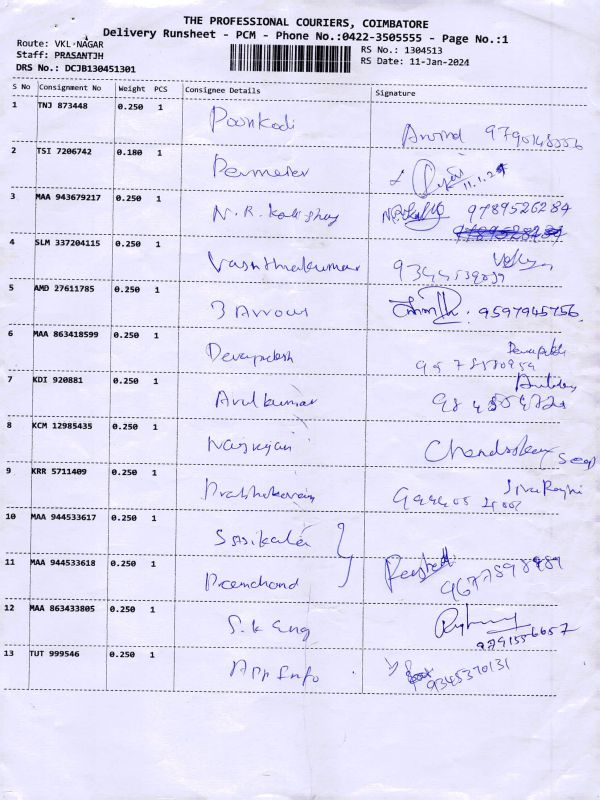 THE PROFESSIONAL COURIERS, COIMBATORE
Delivery Runsheet - PCM - Phone No.:0422-3505555 - Page No.:1
Route: VKL NAGAR RS No.: 1304513
Staff: PRASANTJH RS Date: 11-Jan-2024
DRS No.: DCJB130451301
S No Consignment No Weight PCS Consignee Details Signature
1 TNJ 873448 0.250 1 Poonkodi Arvind
2 TSI 7206742 0.180 1 11.1.24
3 MAA 943679217 0.250 1 N. R. 9789526284
4 SLM 337204115 0.250 1 Vasanthakumar
5 AMD 27611785 0.250 1 3 Arrows 9597945756
6 MAA 863418599 0.250 1 Devaprakash
7 KDI 920881 0.250 1 Arulkumar
8 KCM 12985435 0.250 1
9 KRR 5711409 0.250 1 Prabhakaran
10 MAA 944533617 0.250 1 Sasikala
11 MAA 944533618 0.250 1 Premchand
12 MAA 863433805 0.250 1 S.K Eng 9791556657
13 TUT 999546 0.250 1 App Info 9345370131